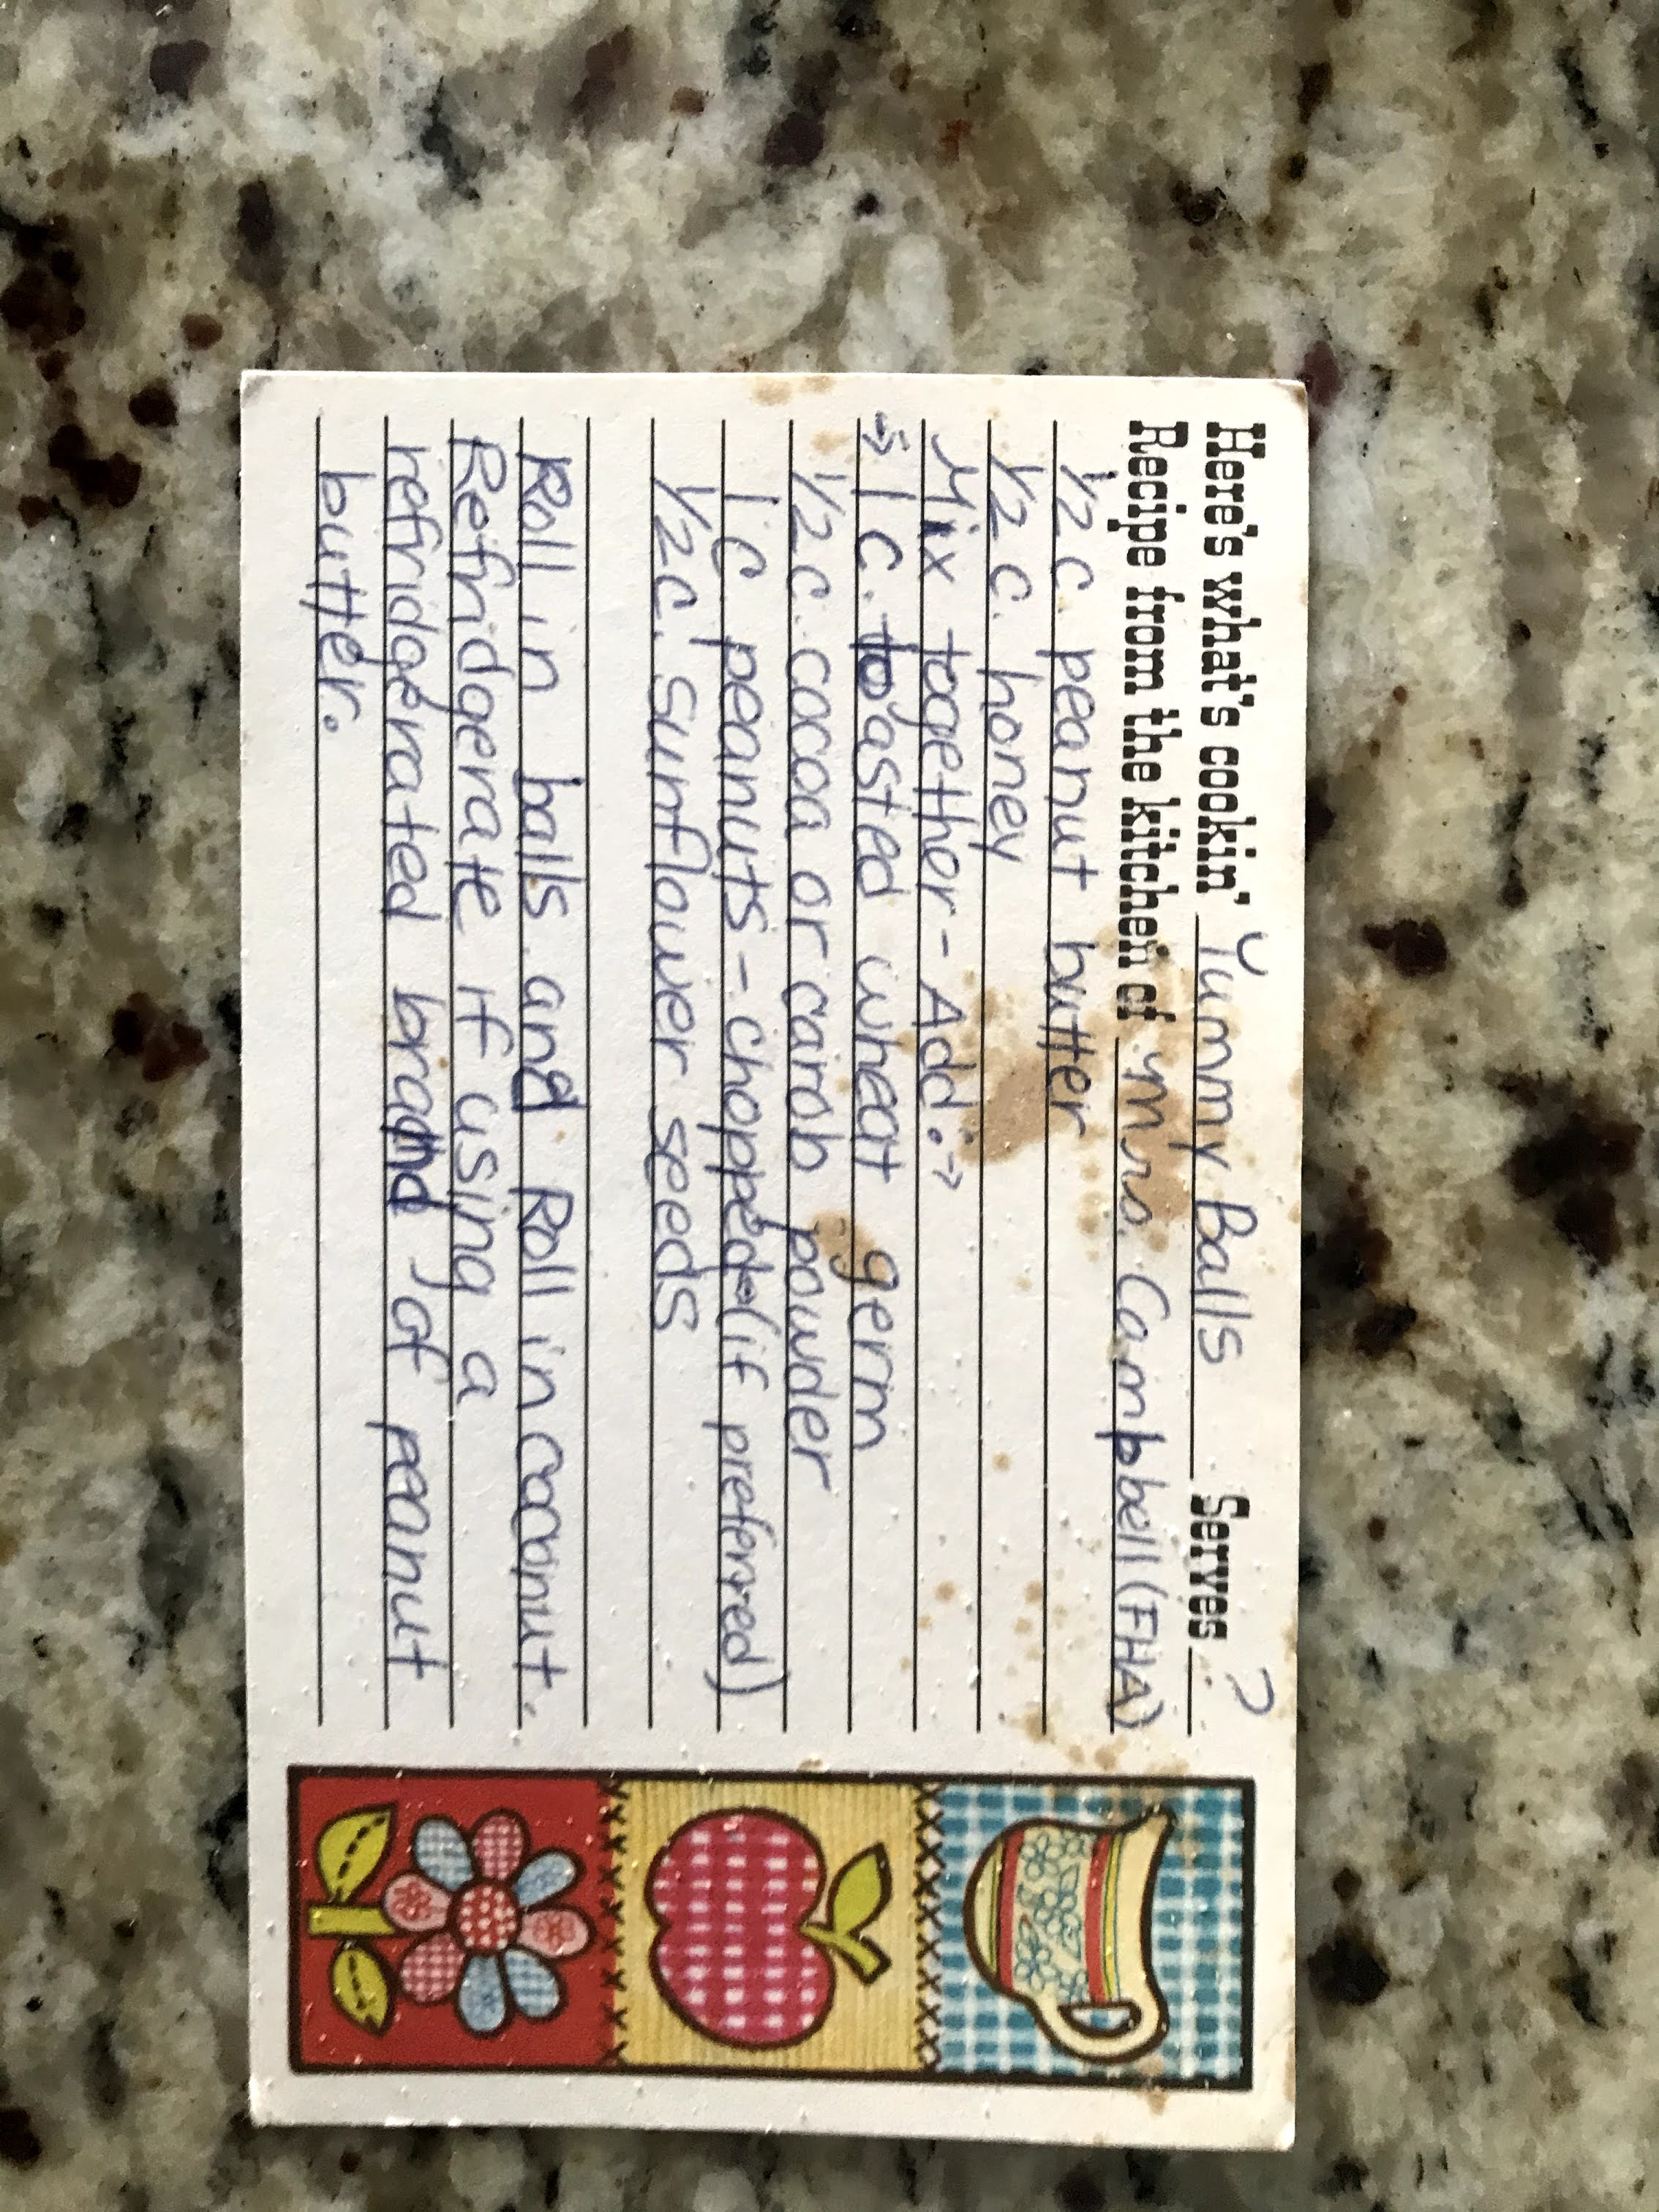 Here's what's cookin' Yummy Balls Serves ?
Recipe from the kitchen of Mrs. Campbell (FHA)
1/2 c. peanut butter
1/2 c. honey
Mix together - Add: →
→ 1 c. toasted wheat germ
1/2 c. cocoa or carob powder
1 c peanuts - chopped (if preferred)
1/2 c. sunflower seeds
Roll in balls and Roll in coconut.
Refridgerate if using a
refridgerated brand of peanut
butter.